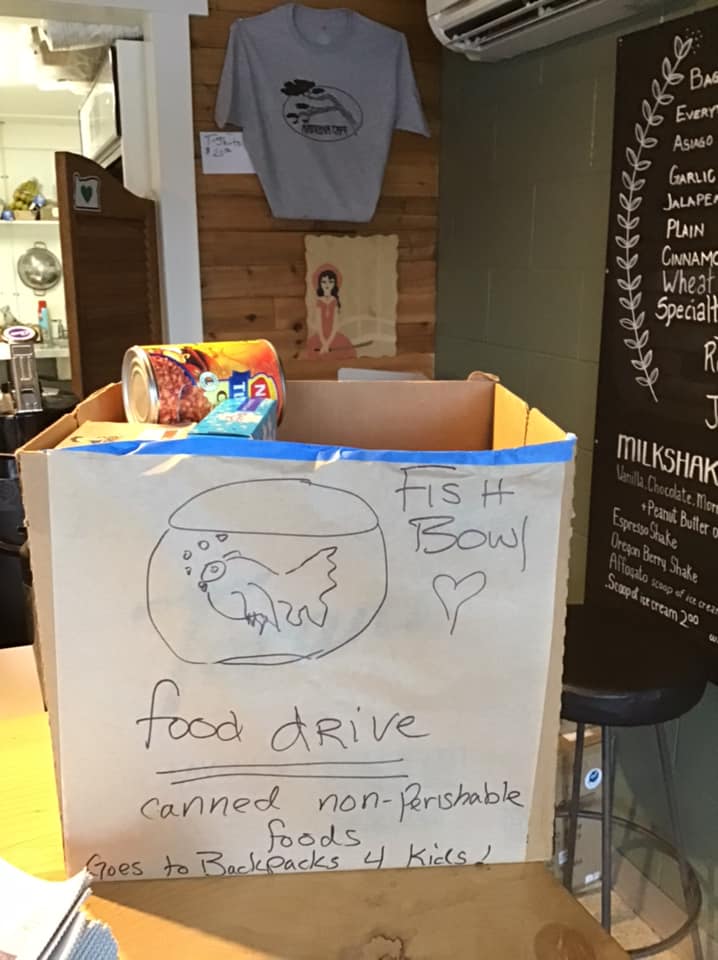 T-Shirts
$20.00
FISH
BOWL
food dRive
canned non-Perishable
foods
Goes to Backpacks 4 Kids!
BAG
EVERY
ASIAGO
GARLIC
JALAPE
PLAIN
CINNAMO
Wheat
Specialt
MILKSHAK
Vanilla, Chocolate,
+ Peanut Butter
Espresso Shake
Oregon Berry Shake
Affogato scoop of ice crea
Scoop of ice cream 2.00